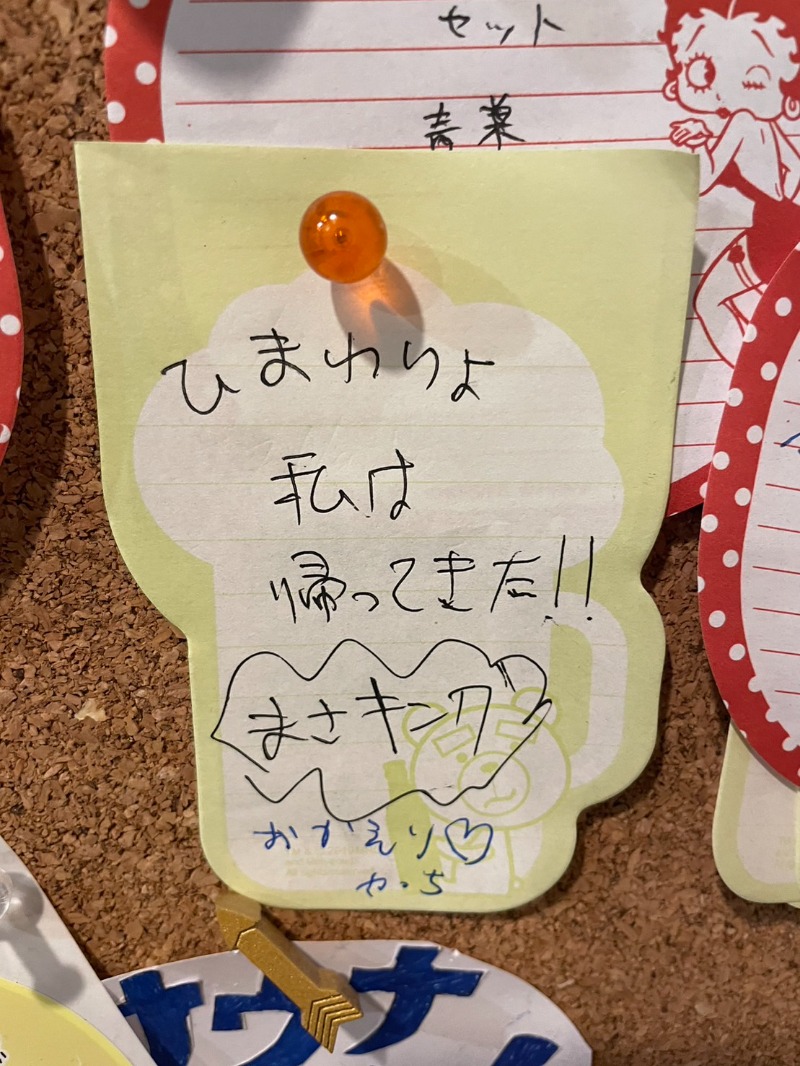 セット
青菜
ひまわりよ
私は
帰ってきた!!
まさキング
おかえり♡
やっち
サウナ